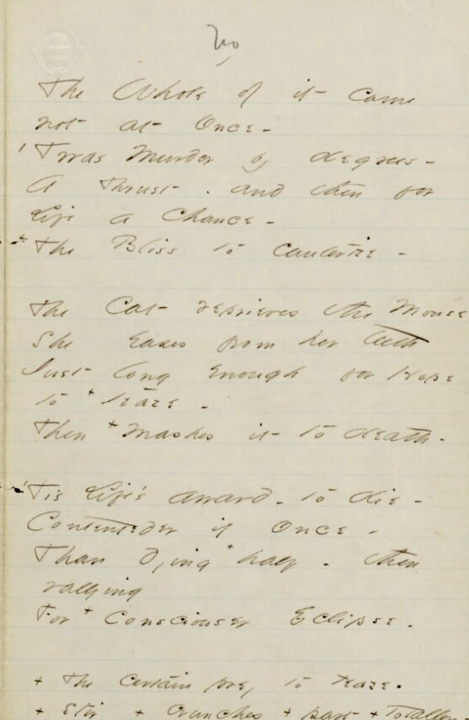 The Whole of it came
not at Once -
'Twas Murder by degrees -
A Thrust - and then for
Life a Chance -
+ The Bliss to cauterize -
The Cat reprieves the Mouse
She eases from her teeth
Just long enough for Hope
to + teaze -
Then + mashes it to death -
'Tis Life's award - to die -
Contenteder if Once -
Than dying + half - then
rallying
For + Consciouser Eclipse -
+ The Certain prey to teaze -
+ Stir + Crunches + part + Totaller